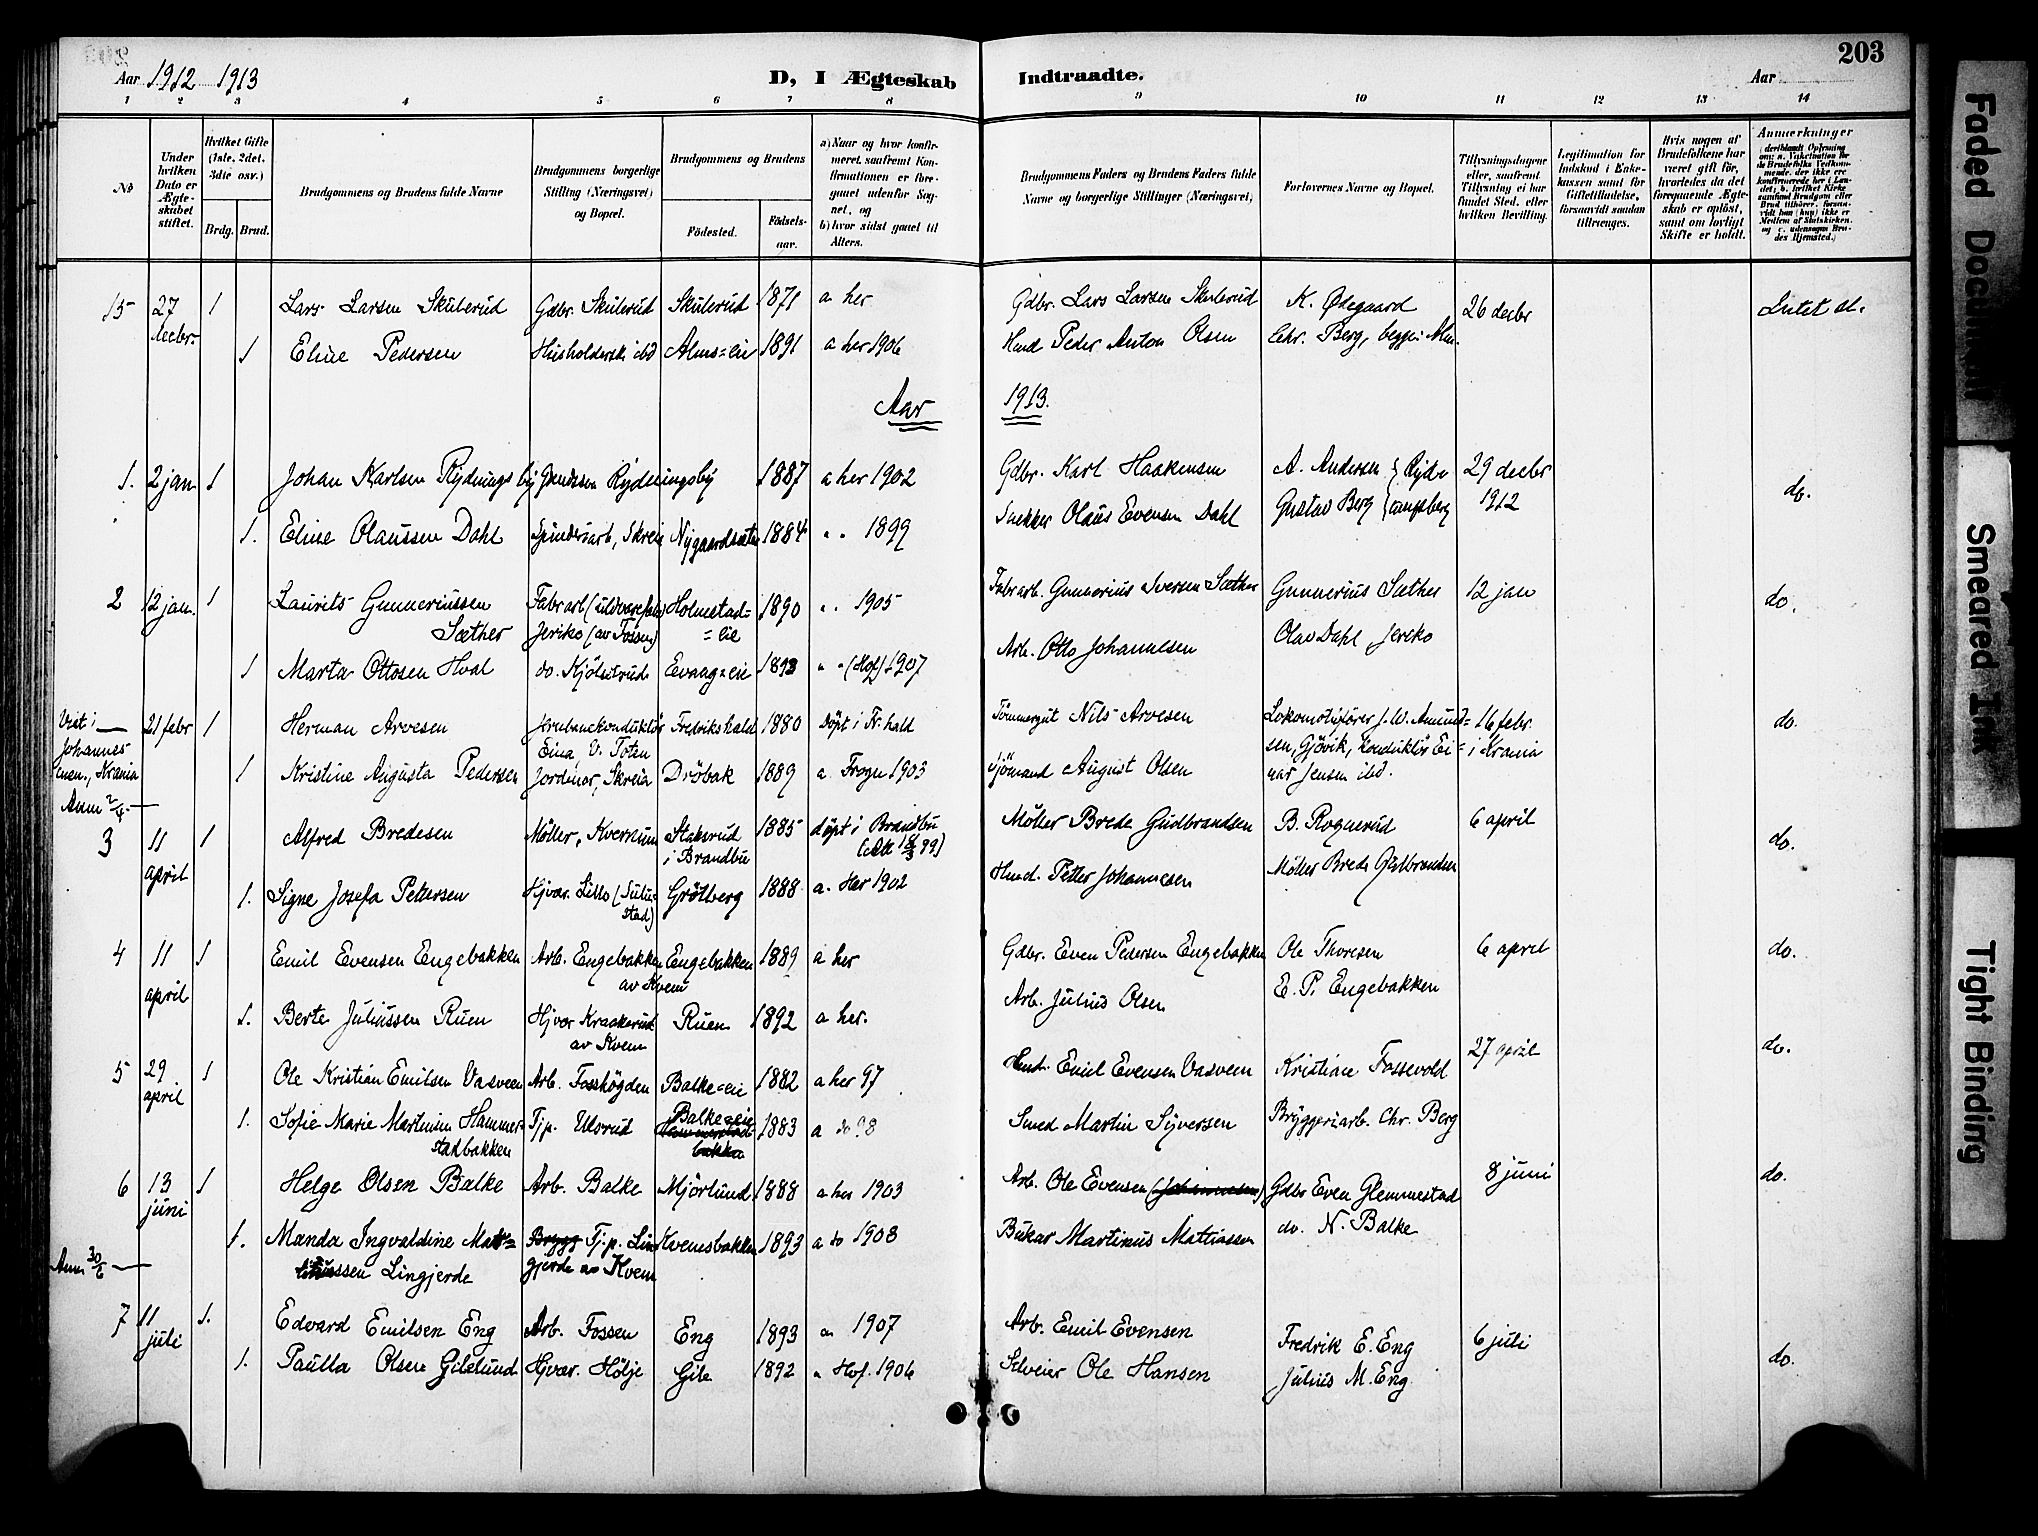 203
Aar 1912 1913
D, I Ægteskab Indtraadte.
Aar
1 2 3 4 5 6 7 8 9 10 11 12 13 14
No
Under hvilken Dato er Ægteskabet stiftet.
Hvilket Gifte (1ste, 2det, 3die osv.)
Brdg. Brud.
Brudgommens og Brudens fulde Navne
Brudgommens borgerlige Stilling (Næringsvei) og Bopæl.
Brudgommens og Brudens
Fødested.
Fødselsaar.
a) Naar og hvor konfirmeret, saafremt Konfirmationen er foregaaet udenfor Sognet, og
b) hvor sidst gaaet til Alters.
Brudgommens Faders og Brudens Faders fulde Navne og borgerlige Stillinger (Næringsvei)
Forlovernes Navne og Bopæl.
Tillysningsdagene eller, saafremt Tillysning ei har fundet Sted, efter hvilken Bevilling.
Legitimation for Indskud i Enkekassen samt for Giftetilladelse, forsaavidt saadan tiltrænges.
Hvis nogen af Brudefolkene har været gift før, hvorledes da det foregaaende Ægteskab er opløst, samt om lovligt Skifte er holdt.
Anmerkninger (deriblandt Oplysning om: a. Vakcination for de Brudefolks Vedkommende, der ikke ere konfirmerede her i Landet; b. hvilket Kirkesamfund Brudgom eller Brud tilhører, forsaavidt han (hun) ikke er Medlem af Statskirken, og c. udensogns Brudes Hjemsted.)
15 27 decbr. 1 Lars Larsen Skulerud Gdbr. Skulerud Skulerud 1871 a her Gdbr. Lars Larsen Skulerud K. Ødegaard 26 decbr Intet at.
1 Eline Pedersen Husholdersk. ibd Alms=eie 1891 a her 1906 Hmd Peder Anton Olsen Chr. Berg, begge: Alm.
Aar 1913.
1. 2 jan 1 Johan Karlsen Rydningsby Grdssøn Rydningsby 1887 a her 1902 Gdbr. Karl Haakensen A. Andersen 29 decbr 1912 do.
1. Eline Olaussen Dahl Spinderiarb, Skreia Nygaardsæter 1884 " " 1899 Snekker Olaus Evensen Dahl Gustav Berg
2 12 jan. 1 Laurits Gunneriussen Sæther Fabrarb (uldvarefabr) Jeriko (av Fossen) Holmestad=eie 1890 " " 1905 Fabrarb. Gunnerius Iversen Sæther Gunnerius Sæther 12 jan do.
1 Marta Ottosen Hval do. Kjølsetrud Evang=eie 1893 " " (Hof) 1907 Arb. Otto Johannesen Olav Dahl Jeriko
Viet i Johannesmen., Krania 21 febr 1 Herman Arvesen Jernbanekonduktør Eina, V. Toten Fredrikshald 1880 Døpt i Fr.hald Tømmergut Nils Arvesen Lokomotivfører J. W. Amundsen, Gjøvik, konduktør Einar Jensen ibd. 16 febr. i Krania do.
1 Kristine Augusta Pedersen Jordmor, Skreia Drøbak 1889 a. Frogn 1903 Sjømand August Olsen
Anm 2/4
3 11 april 1 Alfred Bredesen Møller, Kvernum Staksrud i Brandbu 1885 døpt i Brandbu Møller Brede Gudbrandsen B. Rognerud 6 april do.
1. Signe Josefa Pettersen Hjvær. Grøtberg 1888 a. Her 1902 Hmd. Petter Johannesen Møller Brede Gudbrandsen
4 11 april 1 Emil Evensen Engebakken Arb. Engebakken av Kvem Engebakken 1889 a her Gdbr. Even Pedersen Engebakken Ole Thoresen 6 april do.
1. Berte Juliussen Ruen Hjvær Kraakerud av Kvem Ruen 1892 a her. Arb. Julius Olsen E. P. Engebakken
5 29 april 1 Ole Kristian Emilsen Vasveen Arb. Fosshøgden Balke=eie 1882 a her 97 Hmd. Emil Evensen Vasveen Kristian Fossevold 27 april do.
1. Sofie Marie Martinsen Hammerstadbakken Tjp. Ulsrud Balke=eie 1883 a do 98 Smed Martin Syversen Bryggeriarb. Chr. Berg
6 13 juni 1 Helge Olsen Balke Arb. Balke Mjørlund 1888 a her 1903 Arb. Ole Evensen (Johannesen) Gdbr Even Glemmestad 8 juni do.
1. Manda Ingvaldine Lingjerde Tj.p. Lingjerde av Kvem Kvemsbakken 1893 a do 1908 Martinus Mattiassen do. N. Balke
Anm 30/6
7 11 juli 1. Edvard Emilsen Eng Arb. Fossen Eng 1893 " 1907 Arb. Emil Evensen Fredrik E. Eng 6 juli do.
1. Paulla Olsen Gilelund Hjvær. Hølje Gile 1892 " Hof. 1906 Selveier Ole Hansen Julius M. Eng
Faded Document
Smeared Ink
Tight Binding